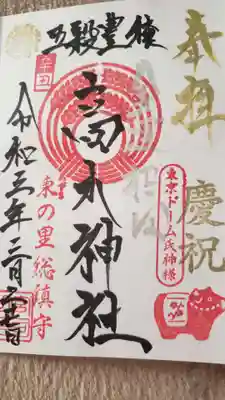 奉拝
慶祝
東京ドーム氏神様
五穀豊穣
高木神社
東の里総鎮守
令和三年二月